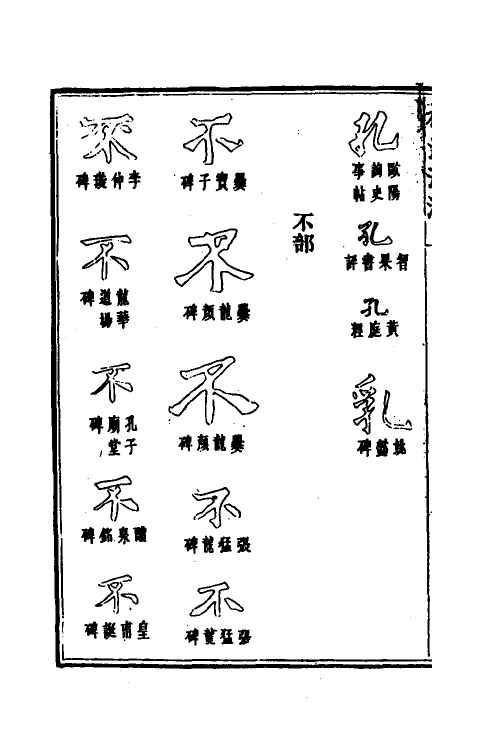 孔
歐陽詢史事帖
孔
智果書評
孔
黃庭經
乳
姚懿碑
不部
不
爨寶子碑
不
爨龍顏碑
不
爨龍顏碑
不
張猛龍碑
不
張猛龍碑
不
李仲璇碑
不
龍華道場碑
不
孔子廟堂碑
不
醴泉銘碑
不
皇甫誕碑